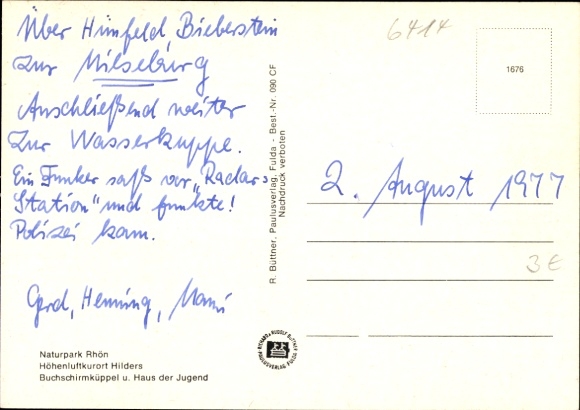 Über Hünfeld, Bieberstein
zur Milseburg
Anschließend weiter
zur Wasserkuppe.
Ein Funker saß vor „Radar-
Station“ und funkte!
Polizei kam.
Gerd, Henning, Mami
Naturpark Rhön
Höhenluftkurort Hilders
Buchschirmküppel u. Haus der Jugend
R. Büttner, Paulusverlag, Fulda - Best.-Nr. 090 CF
Nachdruck verboten
6414
1676
2. August 1977
3€